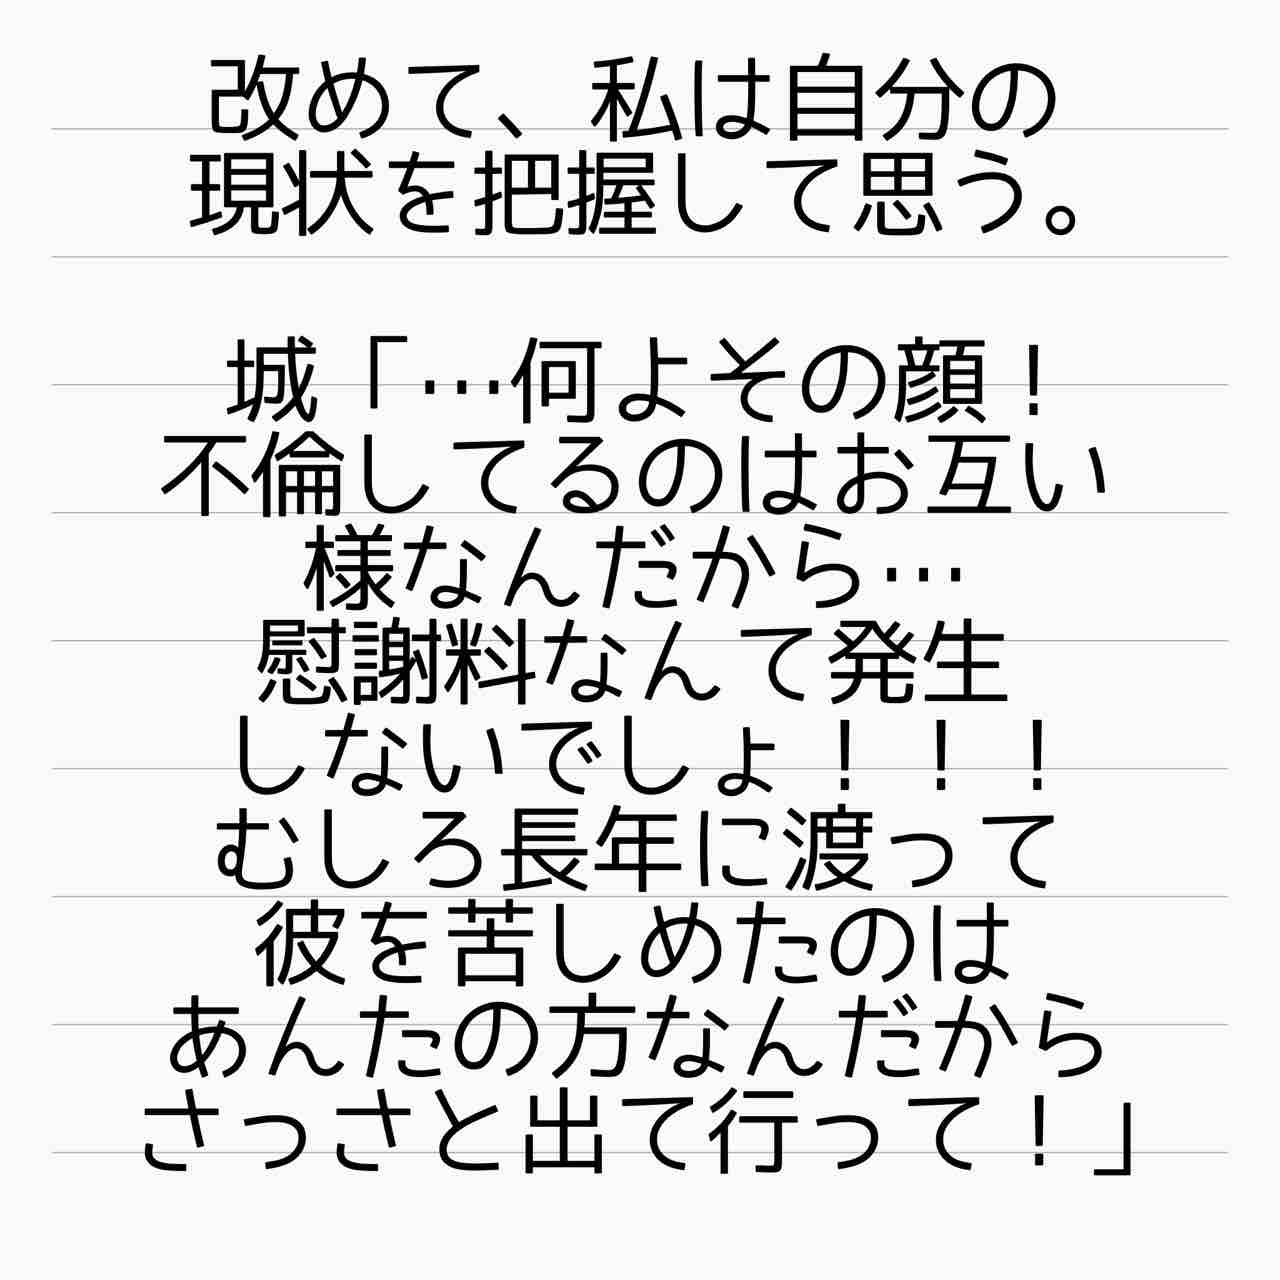 改めて、私は自分の
現状を把握して思う。
城「…何よその顔！
不倫してるのはお互い
様なんだから…
慰謝料なんて発生
しないでしょ！！！
むしろ長年に渡って
彼を苦しめたのは
あんたの方なんだから
さっさと出て行って！」